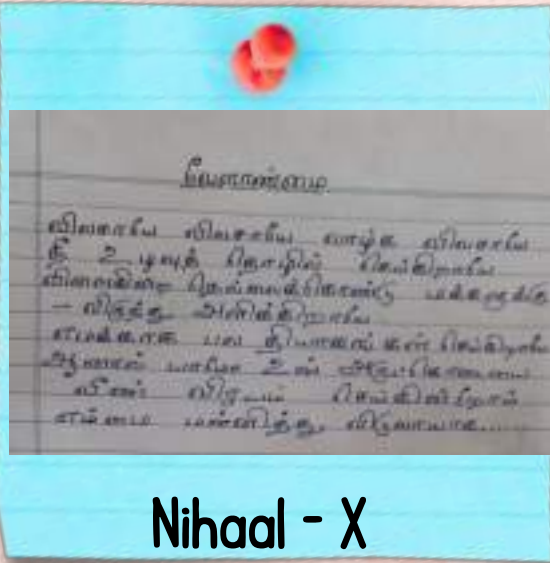 வேளாண்மை
விவசாயி விவசாயி வாழ்க விவசாயி
நீ உழவுத் தொழில் செய்கிறாயே
விளைகின்ற நெல்லைக்கொண்டு மக்களுக்கு
- விருந்து அளிக்கிறாயே
எமக்காக பல தியாகங்கள் செய்கிறாயே
ஆனால் யாமோ உன்
வீண் விரயம் செய்கின்றோம்
எம்மை மன்னித்து விடுவாயாக......
Nihaal - X